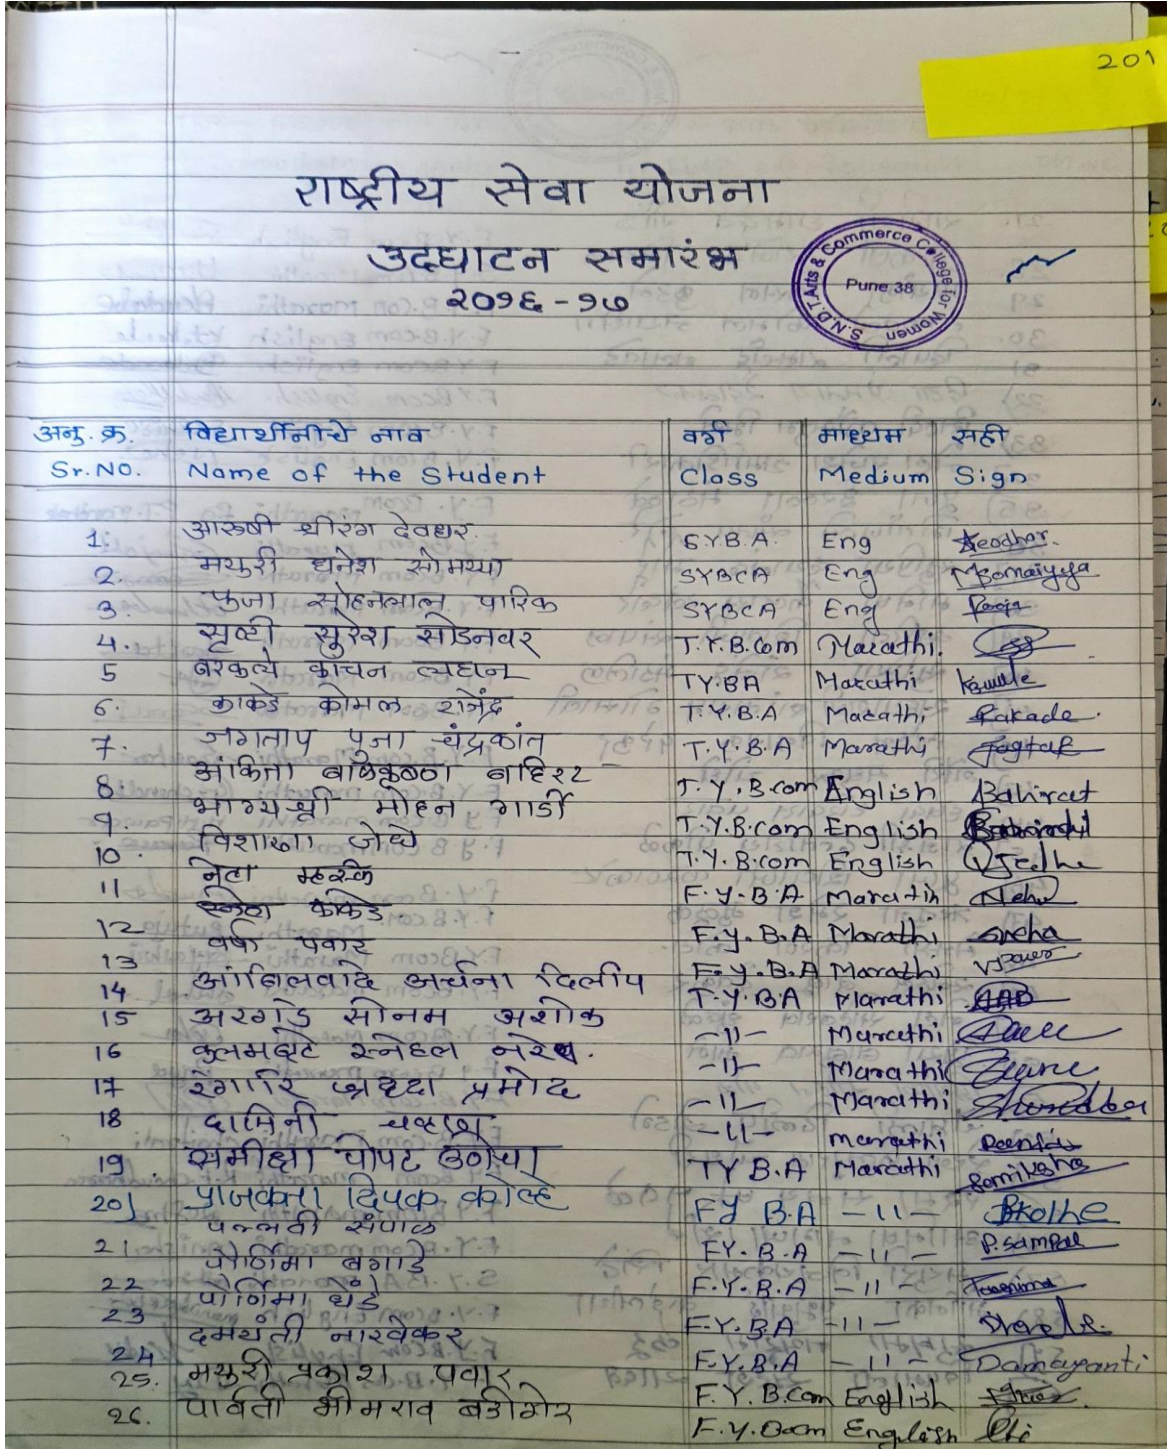 201
राष्ट्रीय सेवा योजना
उद्घाटन समारंभ
२०१६ - १७
S.N.D.T. Arts & Commerce College for Women
Pune 38
अनु. क्र. विद्यार्थीनीचे नाव वर्ग माध्यम सही
Sr. No. Name of the Student Class Medium Sign
1. आरुषी श्रीरंग देवधर. S.Y.B.A. Eng Deodhar.
2. मयुरी धनेश सोमय्या SYBCA Eng MSomaiyya
3. पुजा सोहनलाल पारिक SYBCA Eng Pooja
4. सृष्टी सुरेश सोडनवर T.Y.B.Com Marathi.
5 कांचन TY.BA Marathi
6. काकडे कोमल राजेंद्र T.Y.B.A Marathi Kakade.
7. जगताप पुजा चंद्रकांत T.Y.B.A Marathi Jagtap
8. अंकिता बाळकृष्ण बहिरट T.Y.B.com English Bahirat
9. भाग्यश्री मोहन गार्डी T.Y.B.com English
10. विशाखा जेधे T.Y.B.com English VJedhe
11 नेहा म्हस्के F.Y.B.A Marathi Neha
12 स्नेहा काकडे F.Y.B.A Marathi Sneha
13 वर्षा पवार F.Y.B.A Marathi VPawar
14 आंबिलवादे अर्चना दिलीप T.Y.BA Marathi AAD
15 अरगडे सोनम अशोक -11- Marathi
16 स्नेहल नरेश. -11- Marathi
17 रेगारि श्रध्दा प्रमोद -11- Marathi Shraddha
18 दामिनी चव्हाण -11- marathi
19. समीक्षा पोपट TY B.A Marathi Samiksha
20) प्राजक्ता दिपक कोल्हे FY B.A -11- PKolhe
21. पल्लवी संपाळ F.Y.B.A -11- P. Sampal
22 पौर्णिमा बगाडे F.Y.B.A -11- Poornima
23 पौर्णिमा धेंडे F.Y.B.A -11-
24 दमयंती नारवेकर F.Y.B.A -11- Damayanti
25. मयुरी प्रकाश पवार F.Y.B.Com English
26. पार्वती भीमराव बडीगेर F.Y.Bcom English